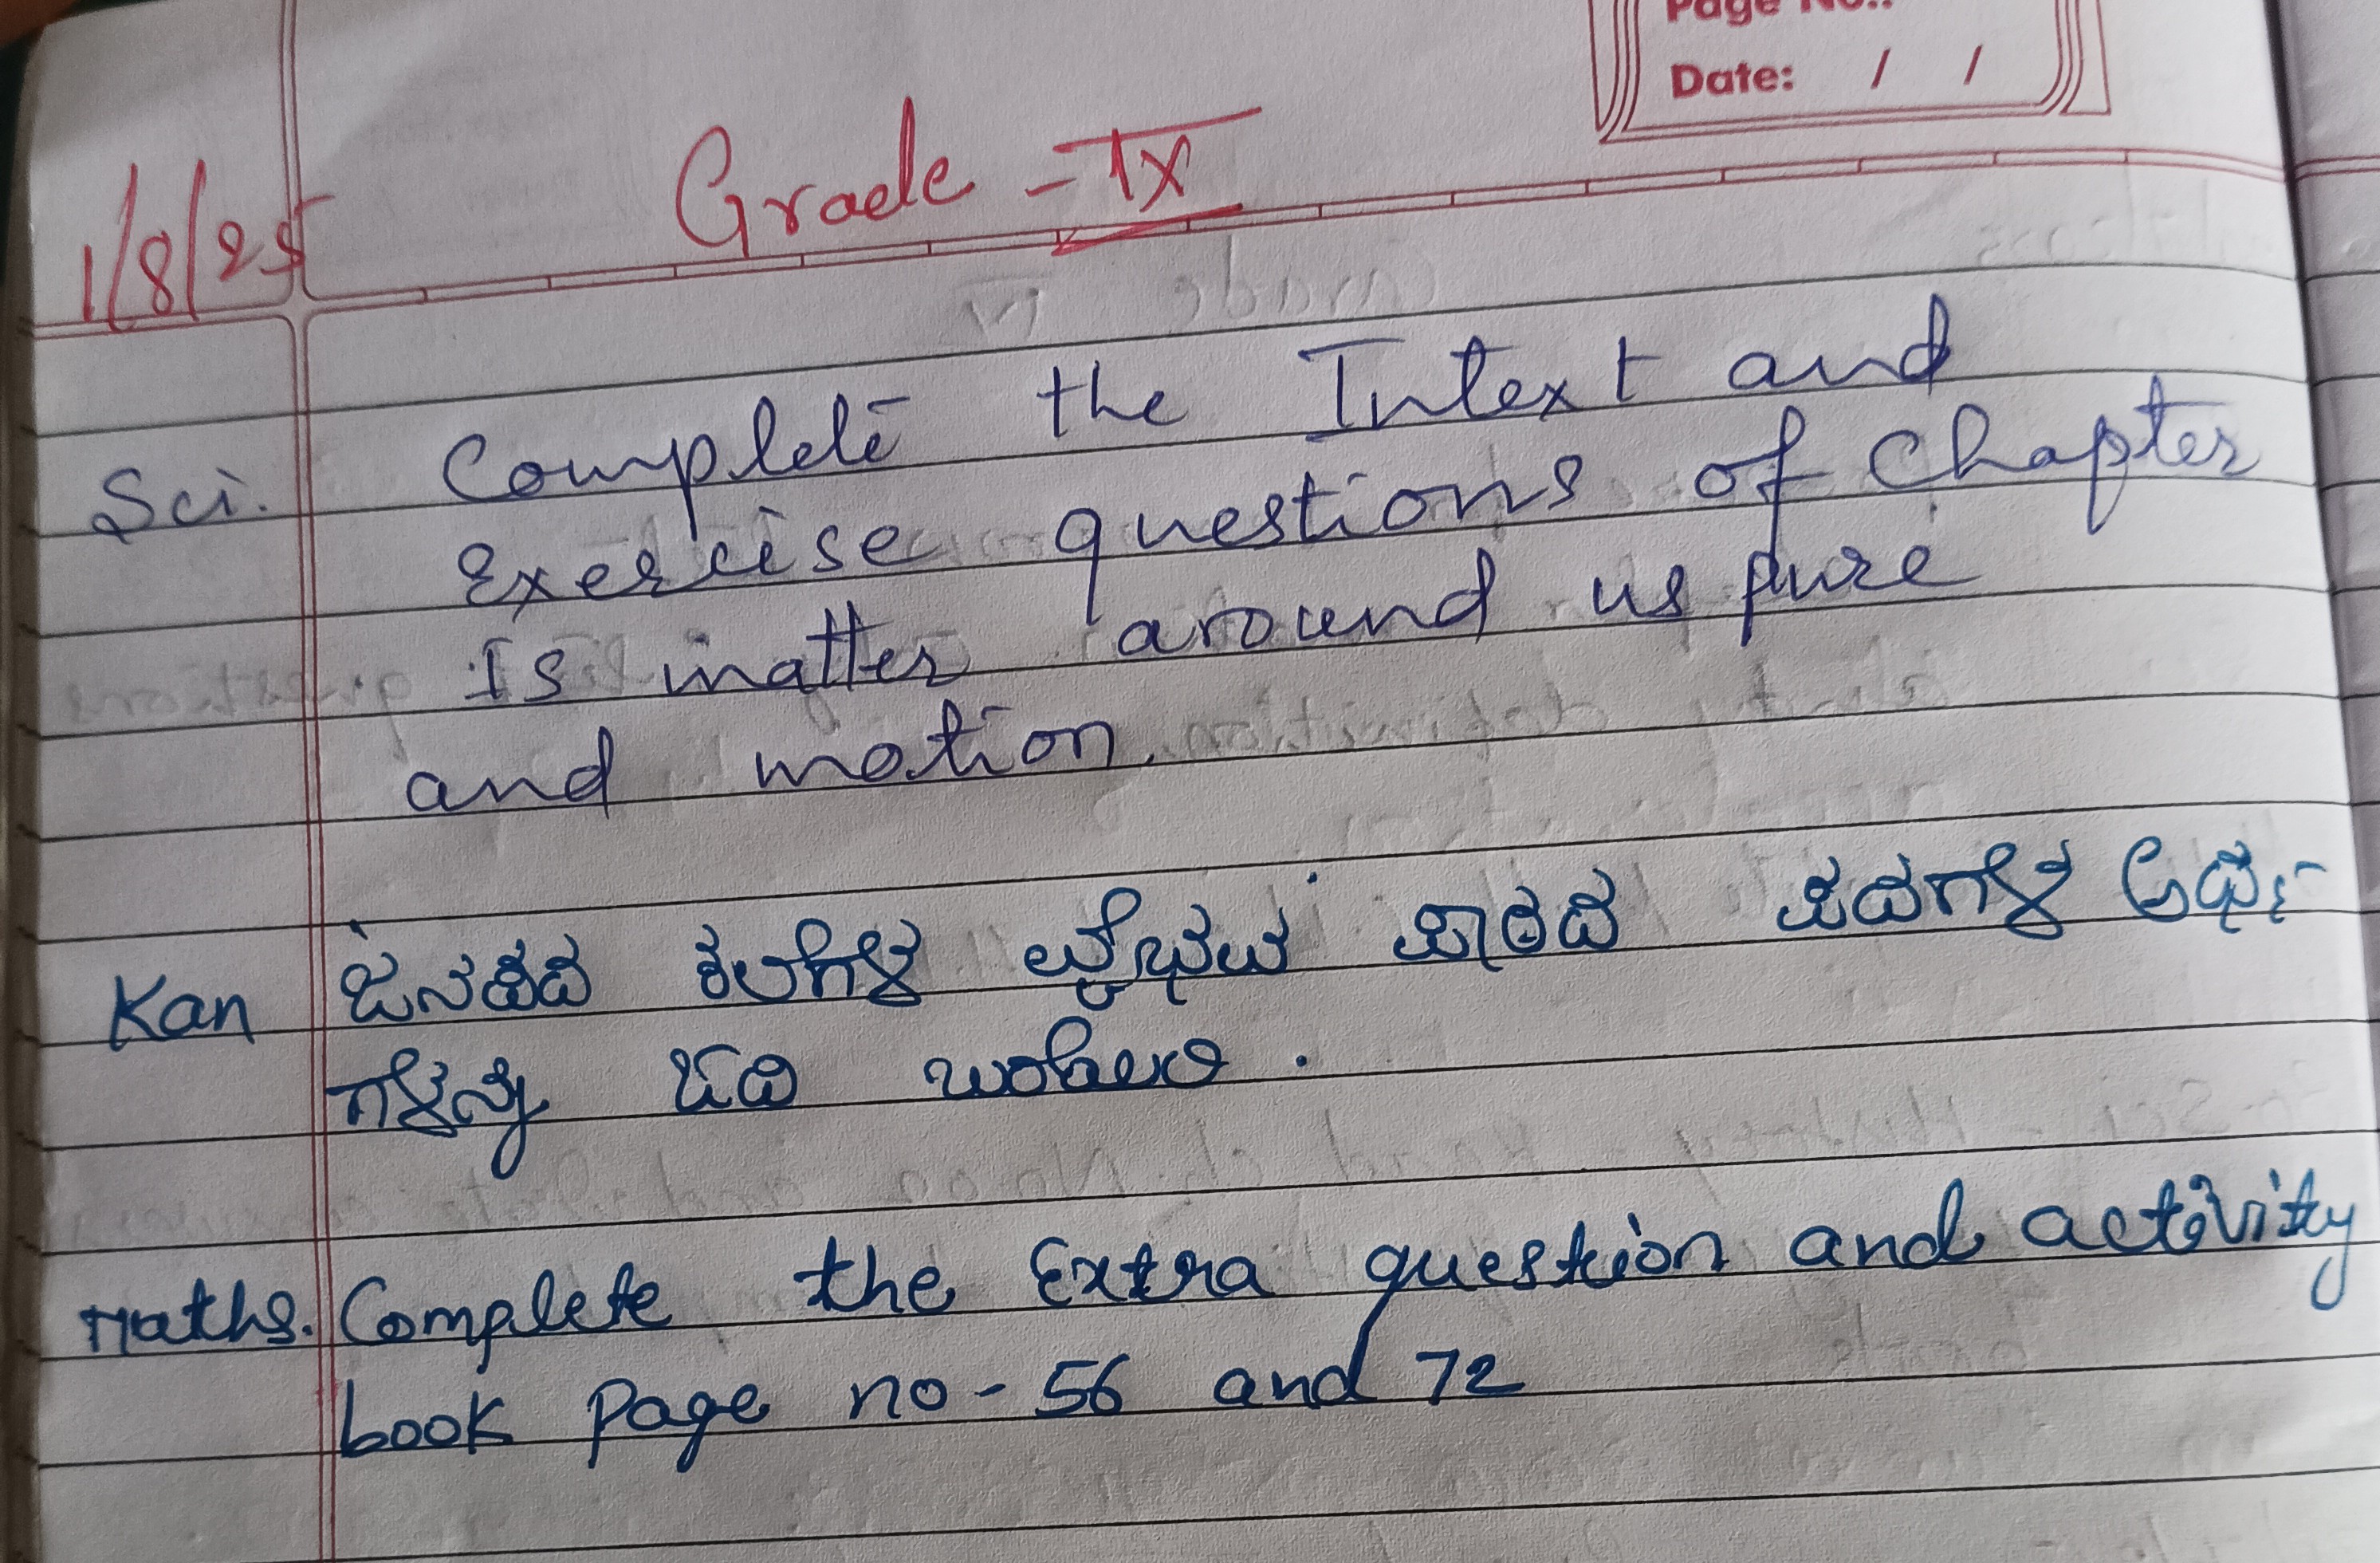 Page No.:
Date: / /
Grade - IX
1/8/25
Sci. Complete the Intext and
Exercise questions of Chapter
Is matter around us pure
and motion.
Kan ಜನಪದ ಕಲೆಗಳ ವೈಭವ ಪಾಠದ ಪದಗಳ ಅರ್ಥ-
ಗಳನ್ನು ಓದಿ ಬರೆಯಿರಿ.
Maths. Complete the Extra question and activity
book page no - 56 and 72